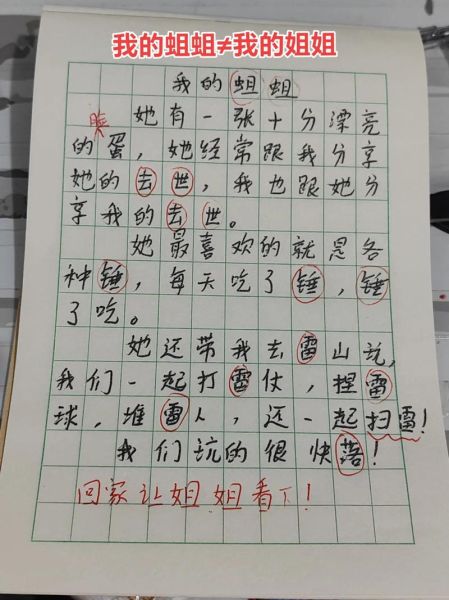 我的蛆蛆≠我的姐姐
我的蛆蛆
脸
她有一张十分漂亮
的蛋，她经常跟我分享
她的去世，我也跟她分
享我的去世。
她最喜欢的就是各
种锤，每天吃了锤，锤
了吃。
她还带我去雷山玩，
我们一起打雷仗，捏雷
球，堆雷人，还一起扫雷！
我们玩的很快落！
回家让姐姐看下！